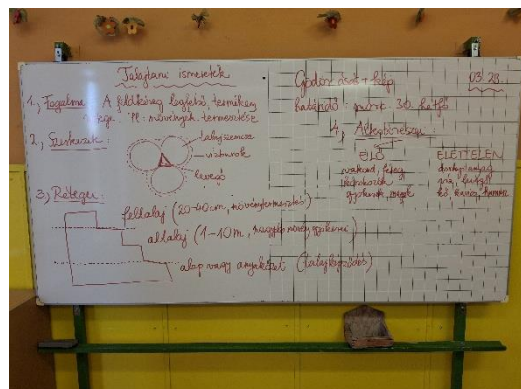 Talajtani ismeretek
1, Fogalma: A földkéreg legfelső, termékeny
rétege. Pl: növények termesztése
2, Szerkezete:
talajszemcse
vízburok
levegő
3, Rétegei:
feltalaj (20-40cm, növénytermesztés)
altalaj (1-10m, nagyobb növény gyökerei)
alap vagy anyakőzet (talajképződés)
Gödör ásás + kép
03 23.
határidő: márc. 30. hétfő
4,
ÉLŐ
ÉLETTELEN
víz, levegő
kő, kavics, homok